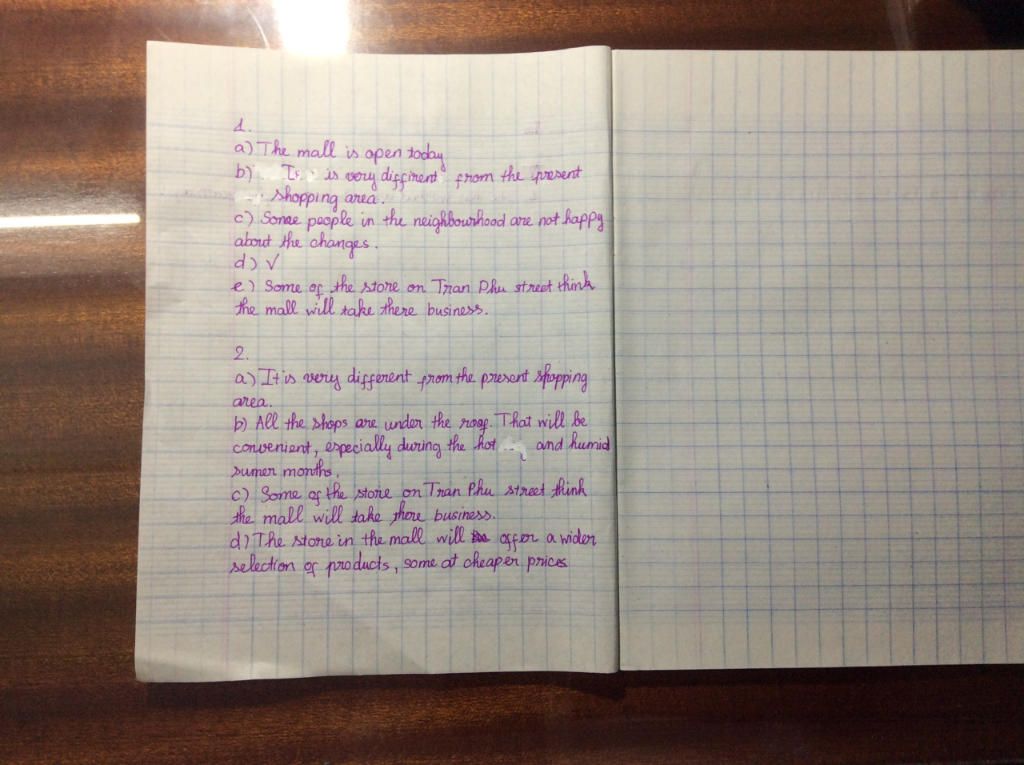 1.
a) The mall is open today
b) It is very diffirent from the present
shopping area.
c) Some people in the neighbourhood are not happy
about the changes.
d) √
e) Some of the store on Tran Phu street think
the mall will take there business.
2.
a) It is very different from the present shopping
area.
b) All the shops are under the roof. That will be
convenient, especially during the hot and humid
sumer months.
c) Some of the store on Tran Phu street think
the mall will take there business.
d) The store in the mall will offer a wider
selection of products, some at cheaper prices